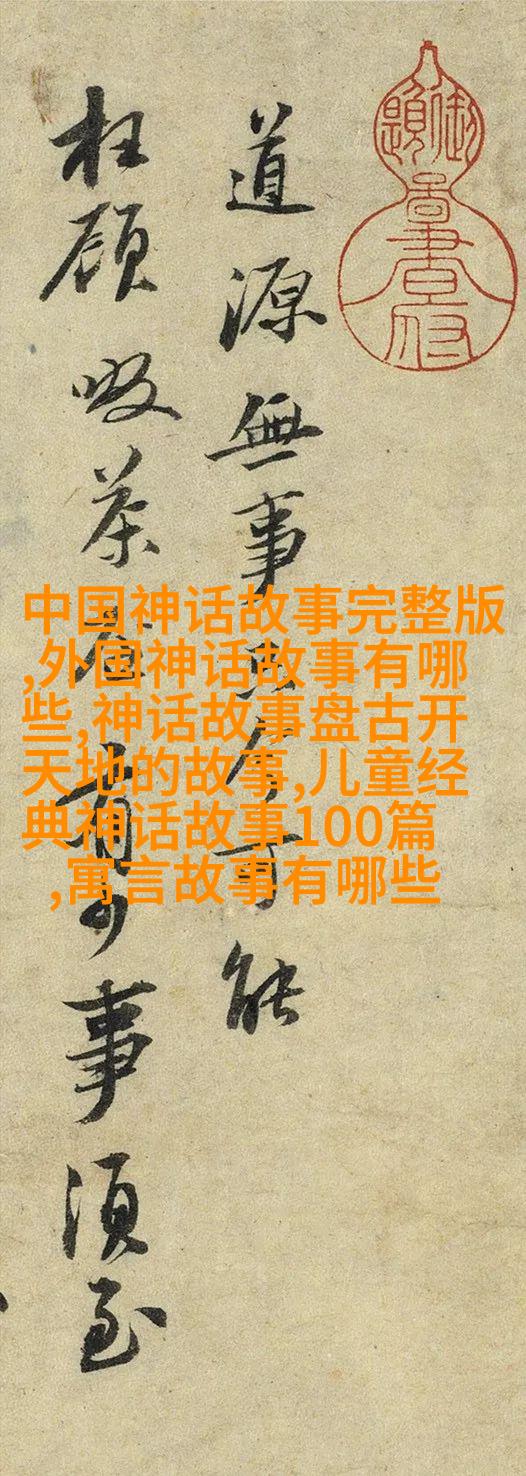 道源無事只今可能
枉顧啜茶否有少事須至
中国神话故事完整版
,外国神话故事有哪
些,神话故事盘古开
天地的故事,儿童经
典神话故事100篇
,寓言故事有哪些